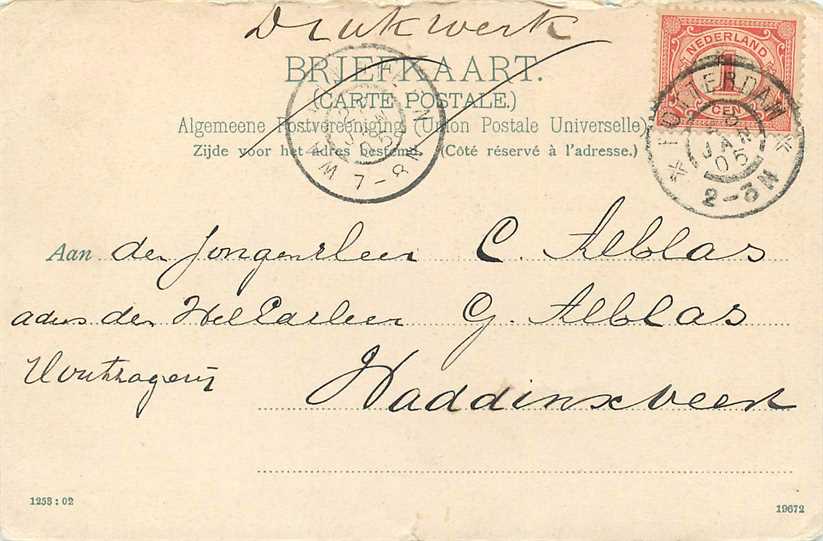 Drukwerk
BRIEFKAART.
(CARTE POSTALE.)
Algemeene Postvereeniging (Union Postale Universelle)
Zijde voor het adres bestemd. (Côté réservé à l'adresse.)
NEDERLAND
1
CENT
ROTTERDAM
JAN
05
2-3N
JAN
05
7-8N
Aan den Jongenheer C. Alblas
adres den WelEdHeer G. Alblas
Houtzagerij
Waddinxveen
1258 : 02
19672